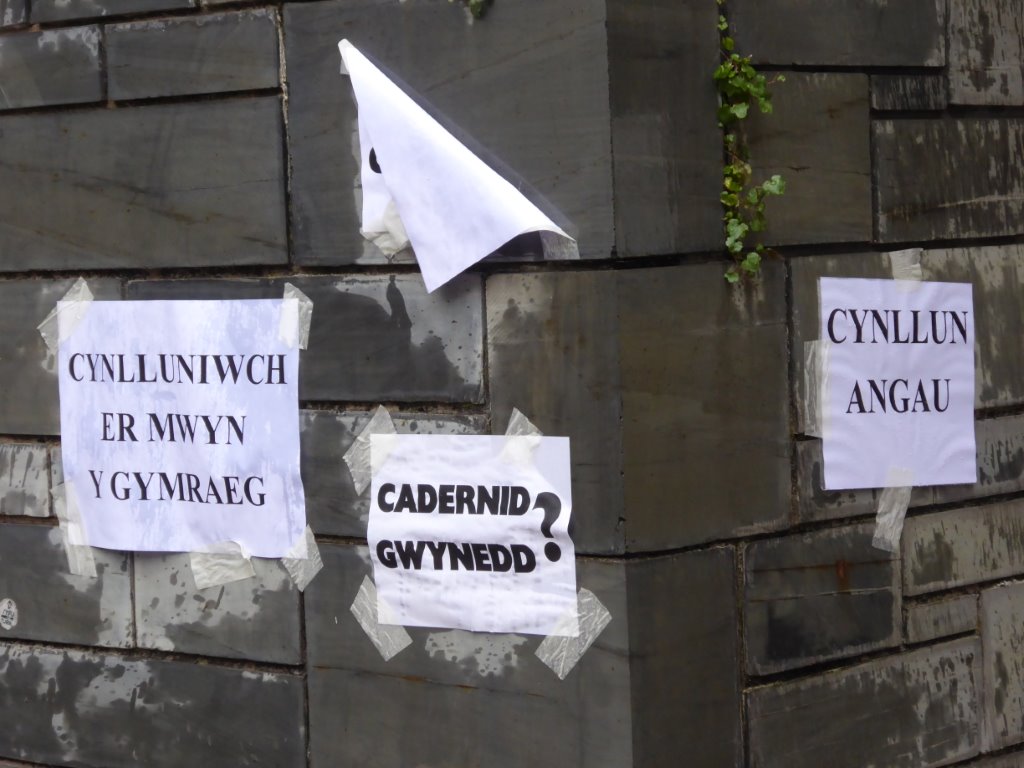 CYNLLUNIWCH
ER MWYN
Y GYMRAEG
CADERNID
GWYNEDD?
CYNLLUN
ANGAU